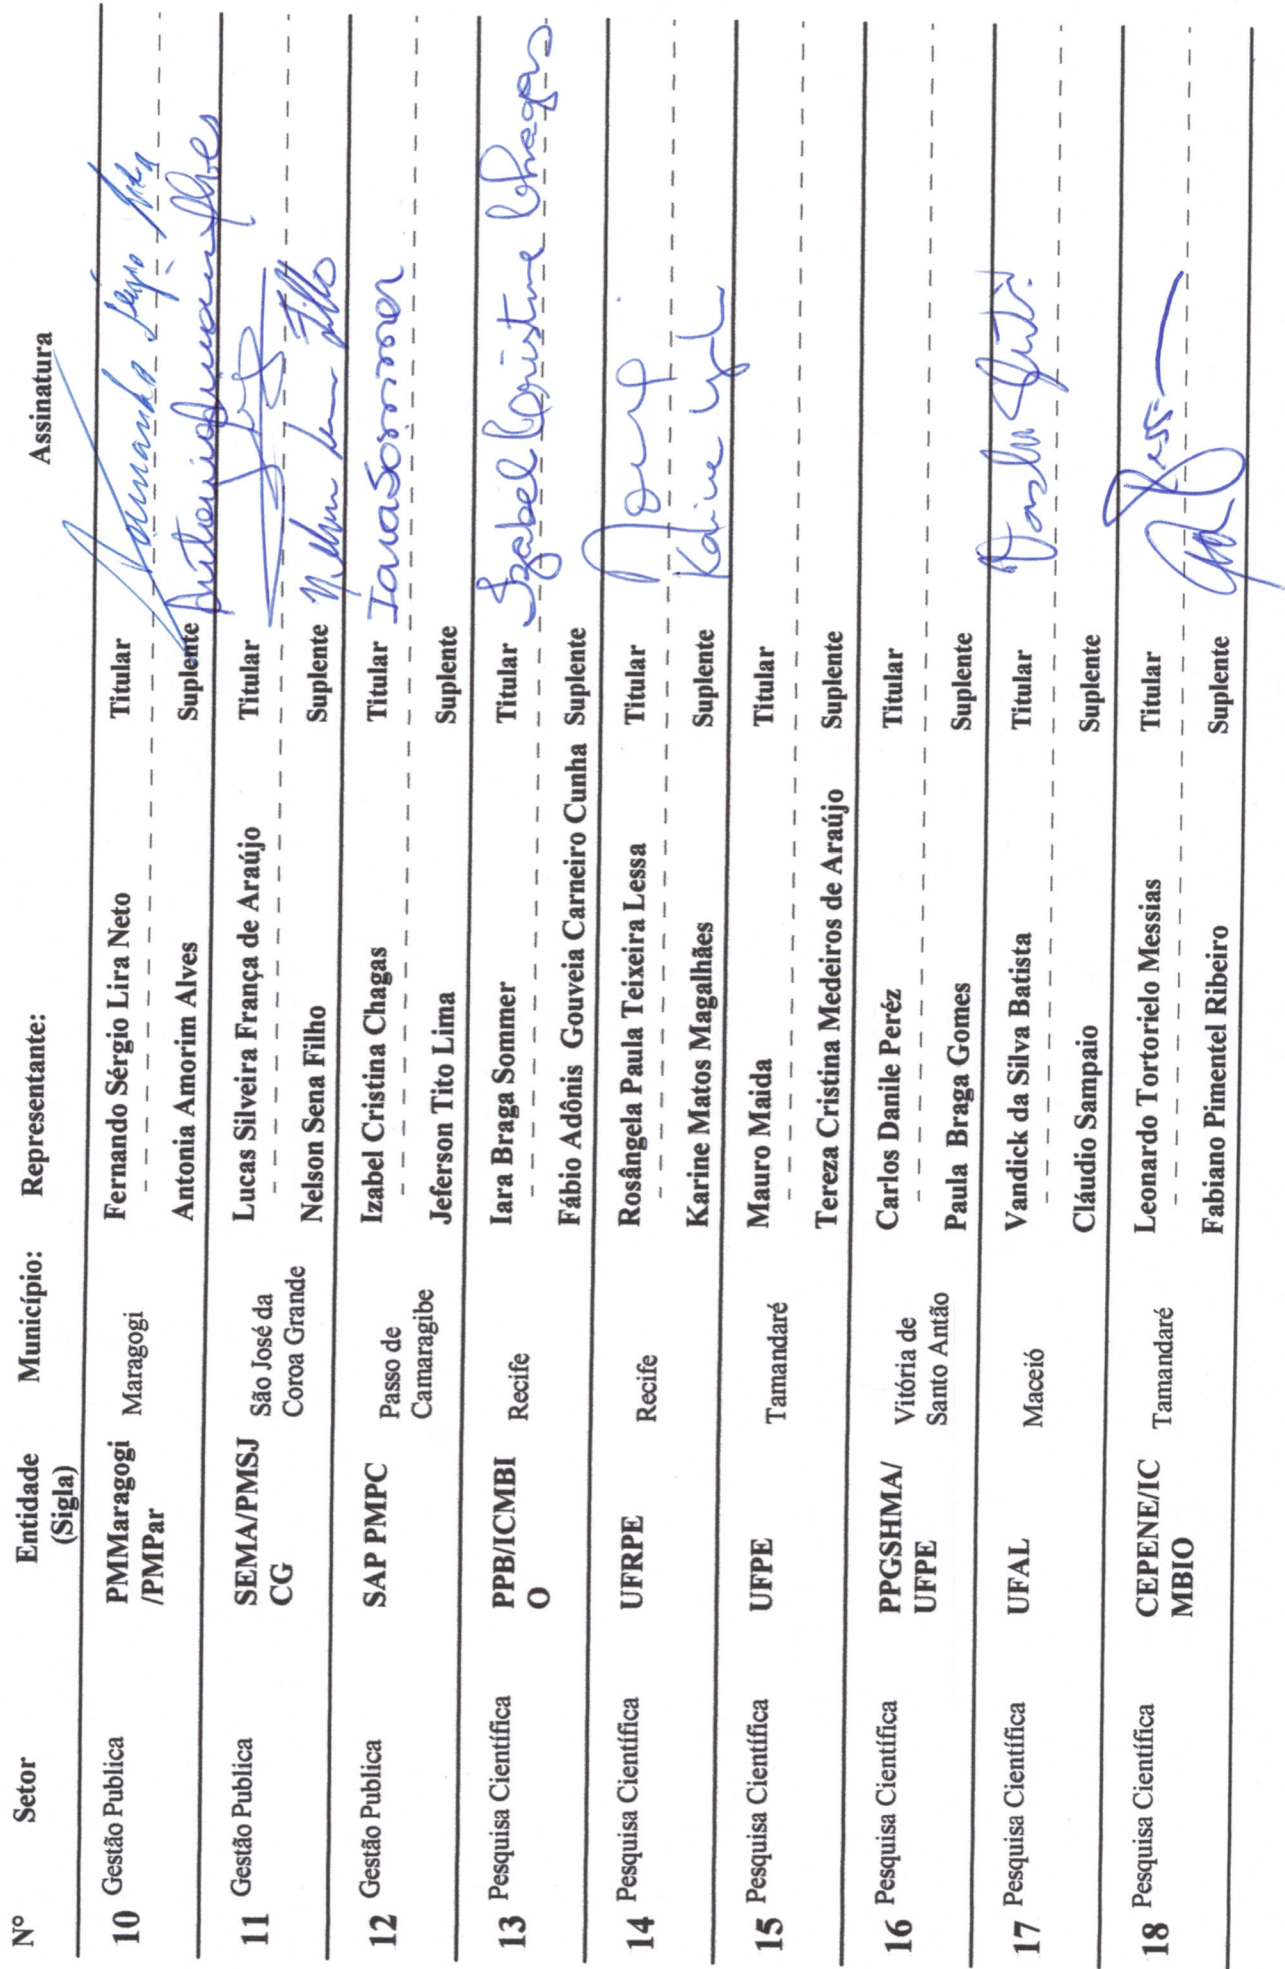 Nº Setor Entidade (Sigla) Município: Representante: Assinatura
10 Gestão Publica PMMaragogi Maragogi Fernando Sérgio Lira Neto Titular Fernando Sérgio Lira
/PMPar Antonia Amorim Alves Suplente Antonia Amorim Alves
11 Gestão Publica SEMA/PMSJ São José da Lucas Silveira França de Araújo Titular
CG Coroa Grande Nelson Sena Filho Suplente Nelson Sena Filho
12 Gestão Publica SAP PMPC Passo de Izabel Cristina Chagas Titular Iara Sommer
Camaragibe Jeferson Tito Lima Suplente
13 Pesquisa Científica PPB/ICMBI Recife Iara Braga Sommer Titular Izabel Cristine Chagas
O Fábio Adônis Gouveia Carneiro Cunha Suplente
14 Pesquisa Científica UFRPE Recife Rosângela Paula Teixeira Lessa Titular
Karine Matos Magalhães Suplente Karine
15 Pesquisa Científica UFPE Tamandaré Mauro Maida Titular
Tereza Cristina Medeiros de Araújo Suplente
16 Pesquisa Científica PPGSHMA/ Vitória de Carlos Danile Peréz Titular
UFPE Santo Antão Paula Braga Gomes Suplente
17 Pesquisa Científica UFAL Maceió Vandick da Silva Batista Titular
Cláudio Sampaio Suplente
18 Pesquisa Científica CEPENE/IC Tamandaré Leonardo Tortorielo Messias Titular
MBIO Fabiano Pimentel Ribeiro Suplente